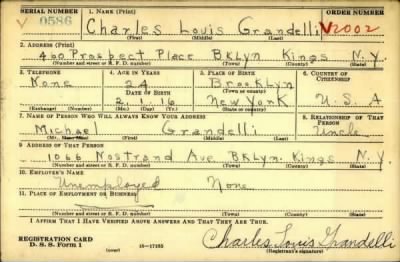 SERIAL NUMBER 1. NAME (Print) ORDER NUMBER
V 0586 Charles Louis Grandelli V2002
(First) (Middle) (Last)
2. ADDRESS (Print)
460 Prospect Place BKLyn Kings N.Y.
(Number and street or R. F. D. number) (Town) (County) (State)
3. TELEPHONE 4. AGE IN YEARS 5. PLACE OF BIRTH 6. COUNTRY OF CITIZENSHIP
None 24 Brooklyn
DATE OF BIRTH (Town or county)
2. 1. 16 New York U.S.A
(Exchange) (Number) (Mo.) (Day) (Yr.) (State or country)
7. NAME OF PERSON WHO WILL ALWAYS KNOW YOUR ADDRESS 8. RELATIONSHIP OF THAT PERSON
Michael Grandelli Uncle
(Mr., Mrs., Miss) (First) (Middle) (Last)
9. ADDRESS OF THAT PERSON
1066 Nostrand Ave BKLyn. Kings N.Y.
(Number and street or R. F. D. number) (Town) (County) (State)
10. EMPLOYER'S NAME
Unemployed None
11. PLACE OF EMPLOYMENT OR BUSINESS
(Number and street or R. F. D. number) (Town) (County) (State)
I AFFIRM THAT I HAVE VERIFIED ABOVE ANSWERS AND THAT THEY ARE TRUE.
REGISTRATION CARD
D. S. S. Form 1 (over) 16—17105 Charles Louis Grandelli
(Registrant's signature)